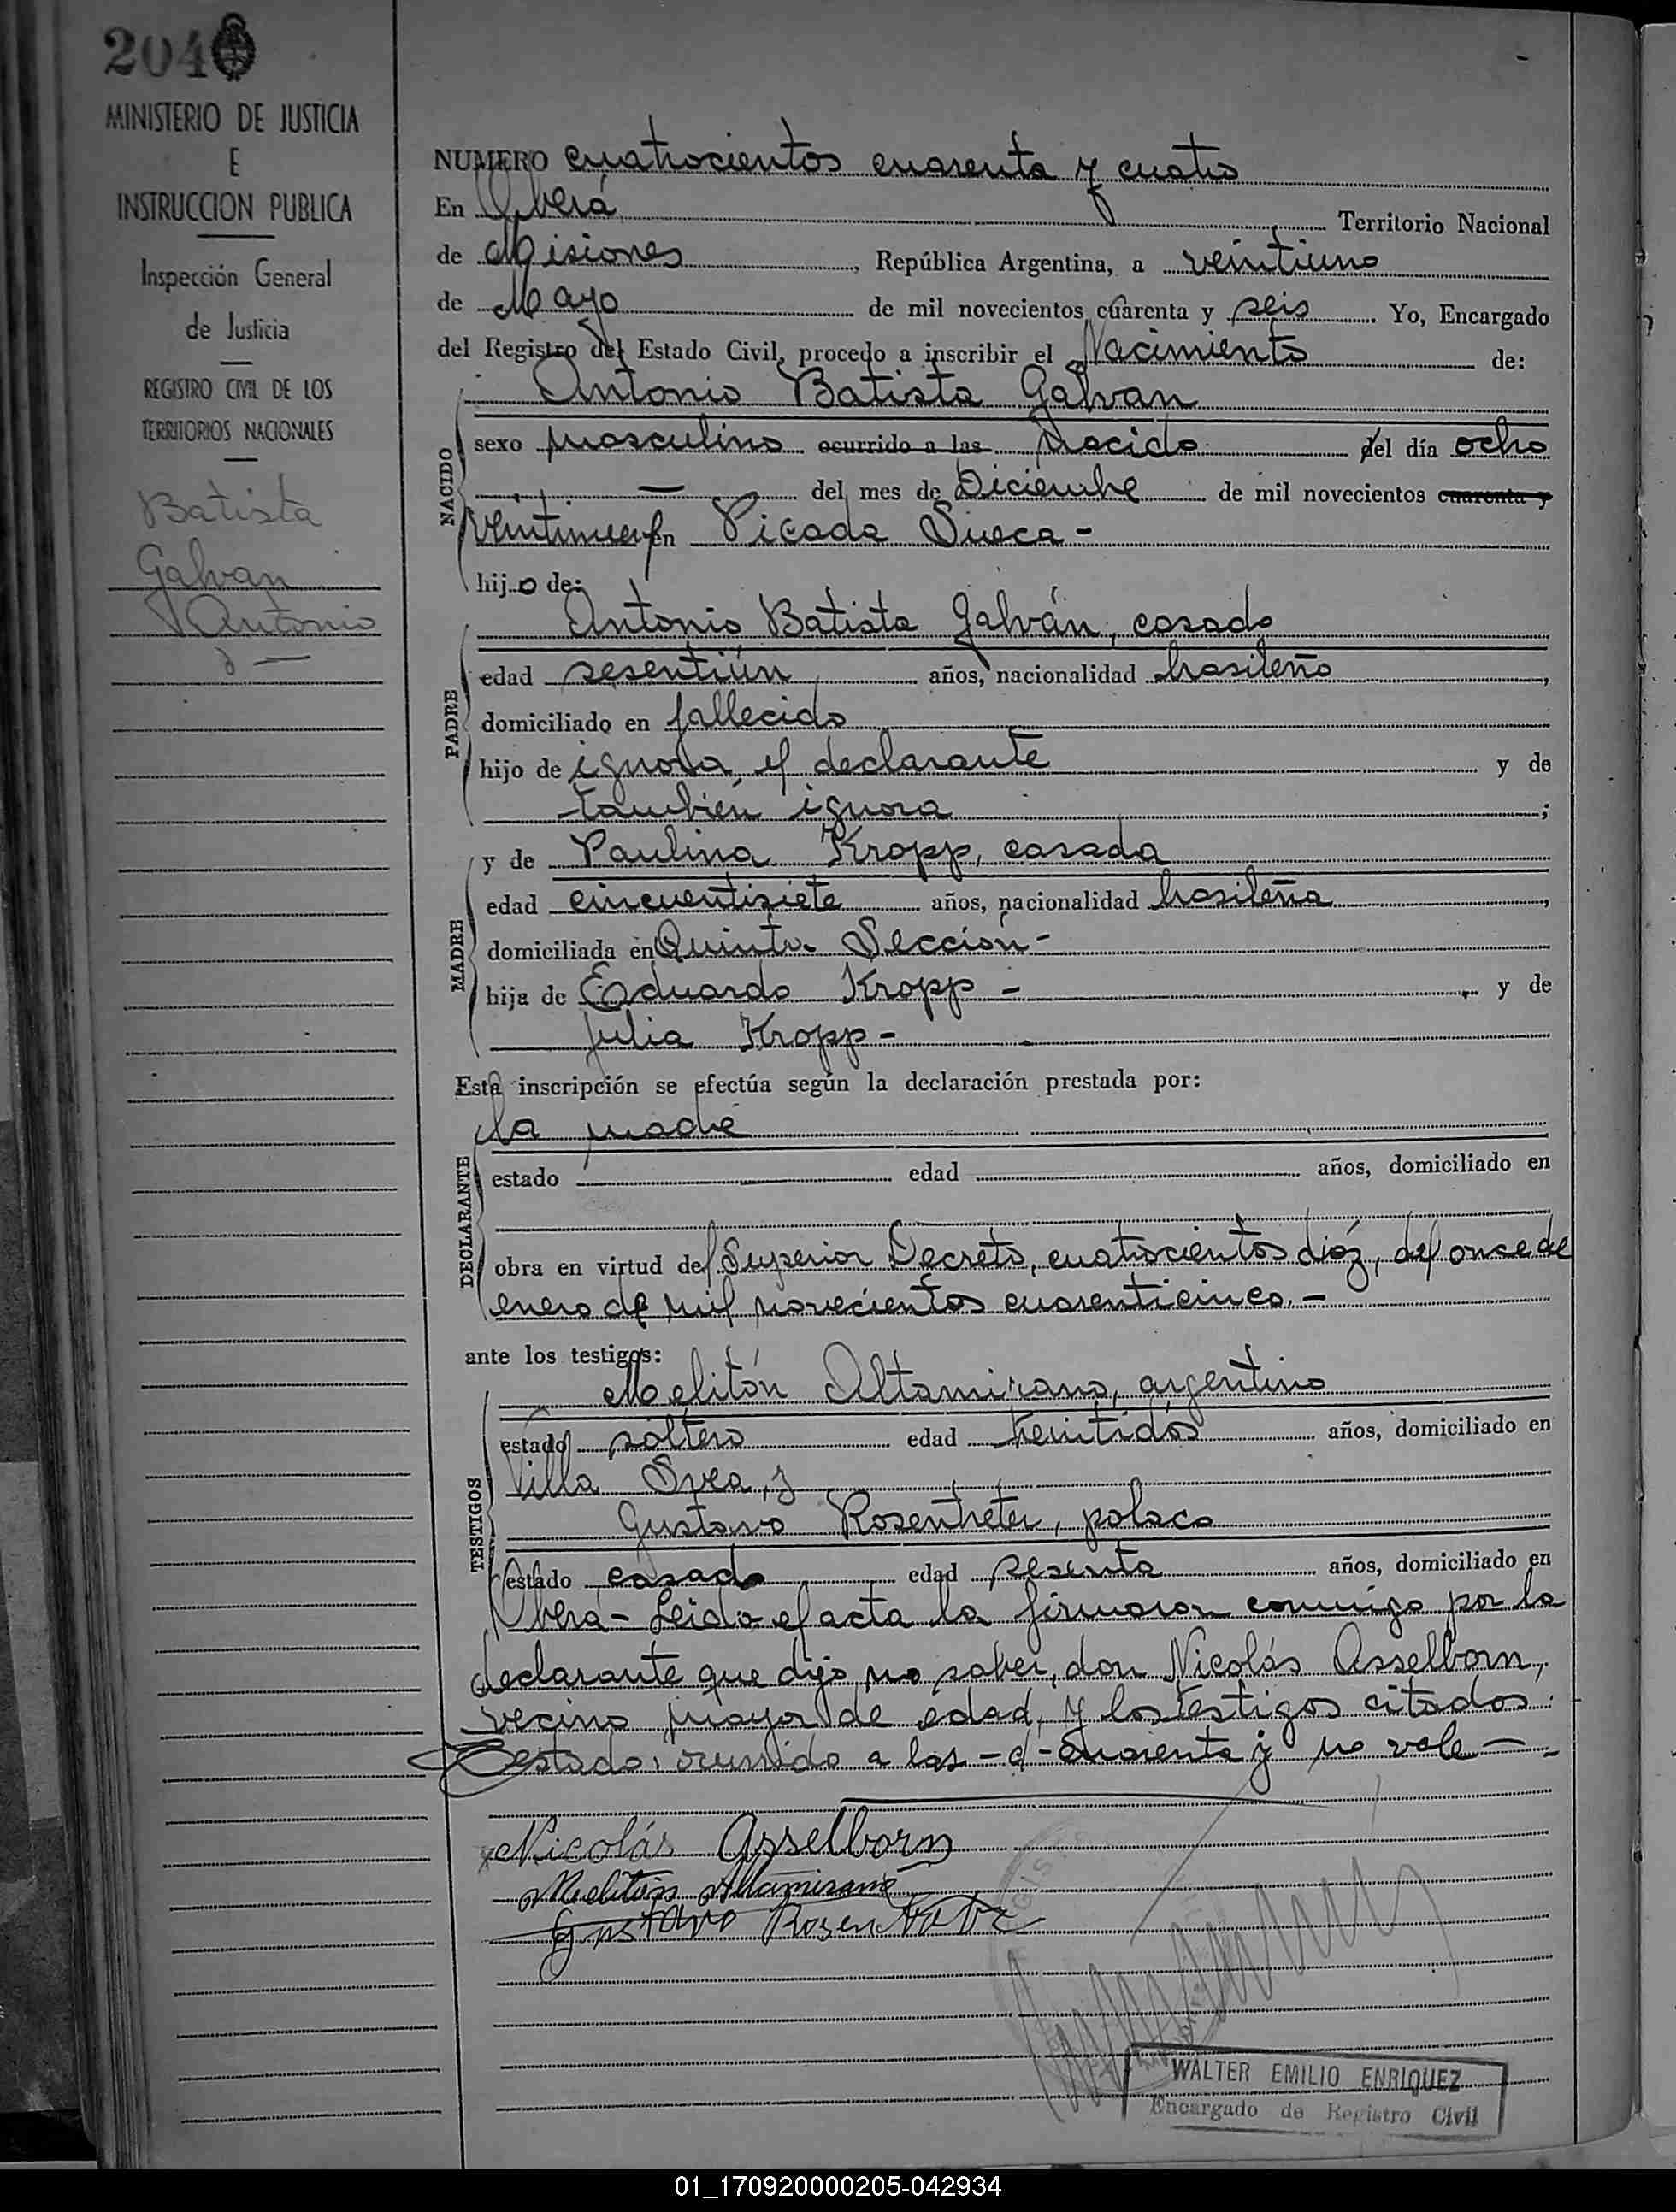 204
MINISTERIO DE JUSTICIA
E
INSTRUCCION PUBLICA
Inspección General
de Justicia
REGISTRO CIVIL DE LOS
TERRITORIOS NACIONALES
Batista
Galvan
Antonio
NUMERO cuatrocientos cuarenta y cuatro
En Oberá Territorio Nacional
de Misiones, República Argentina, a veintiuno
de Mayo de mil novecientos cuarenta y seis. Yo, Encargado
del Registro del Estado Civil, procedo a inscribir el Nacimiento de:
Antonio Batista Galvan
NACIDO
sexo masculino ocurrido a las nacido del día ocho
— del mes de Diciembre de mil novecientos cuarenta y
en Picada Sueca -
hijo de:
Antonio Batista Galván, casado
PADRE
edad sesentiún años, nacionalidad brasileño,
domiciliado en fallecido
hijo de ignora el declarante y de
también ignora;
y de Paulina Kropp, casada
MADRE
edad cincuentisiete años, nacionalidad brasileña,
domiciliada en Quinta Sección -
hija de Eduardo Kropp - y de
Julia Kropp -
Esta inscripción se efectúa según la declaración prestada por:
la madre
DECLARANTE
estado edad años, domiciliado en
obra en virtud del Superior Decreto, cuatrocientos diéz, del once de
enero de mil novecientos cuarenticinco. -
ante los testigos:
Melitón Altamirano, argentino
TESTIGOS
estado soltero edad treintidós años, domiciliado en
Villa Svea, y
Gustavo Rosentreter, polaco
estado casado edad sesenta años, domiciliado en
Oberá - Leida el acta la firmaron conmigo por la
declarante que dijo no saber, don Nicolás Asselborn,
vecino mayor de edad, y los testigos citados.
Testado: ocurrido a las - d - cuarenta y no vale —
Nicolás Asselborn
Meliton Altamirano
Gustavo Rosentreter
WALTER EMILIO ENRIQUEZ
Encargado de Registro Civil
01_170920000205-042934